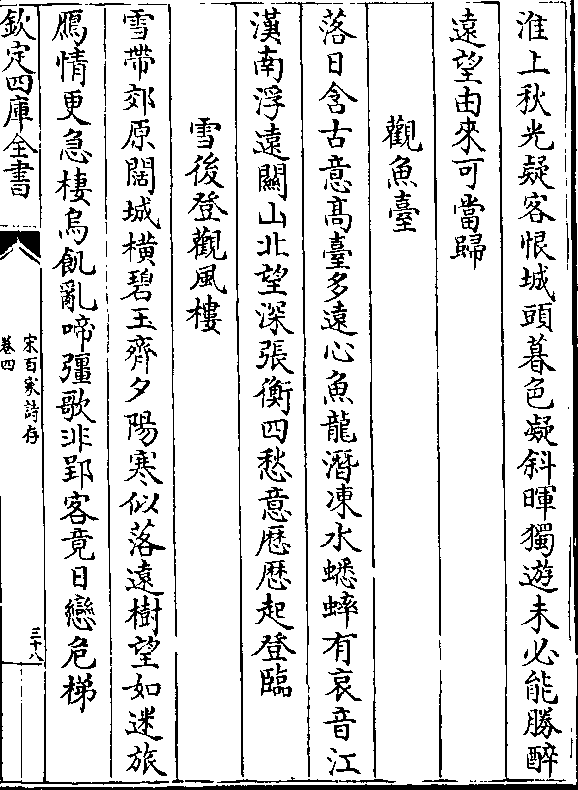 淮上秋光疑客恨城頭暮色凝斜暉獨遊未必能勝醉
遠望由來可當歸
觀魚臺
落日含古意高臺多遠心魚龍潛凍水蟋蟀有哀音江
漢南浮遠關山北望深張衡四愁意歴歴起登臨
雪後登觀風樓
雪帶郊原闊城橫碧玉齊夕陽寒似落遠樹望如迷旅
鴈情更急棲烏飢亂啼彊歌非郢客竟日戀危梯
欽定四庫全書
宋百家詩存
卷四
三十八